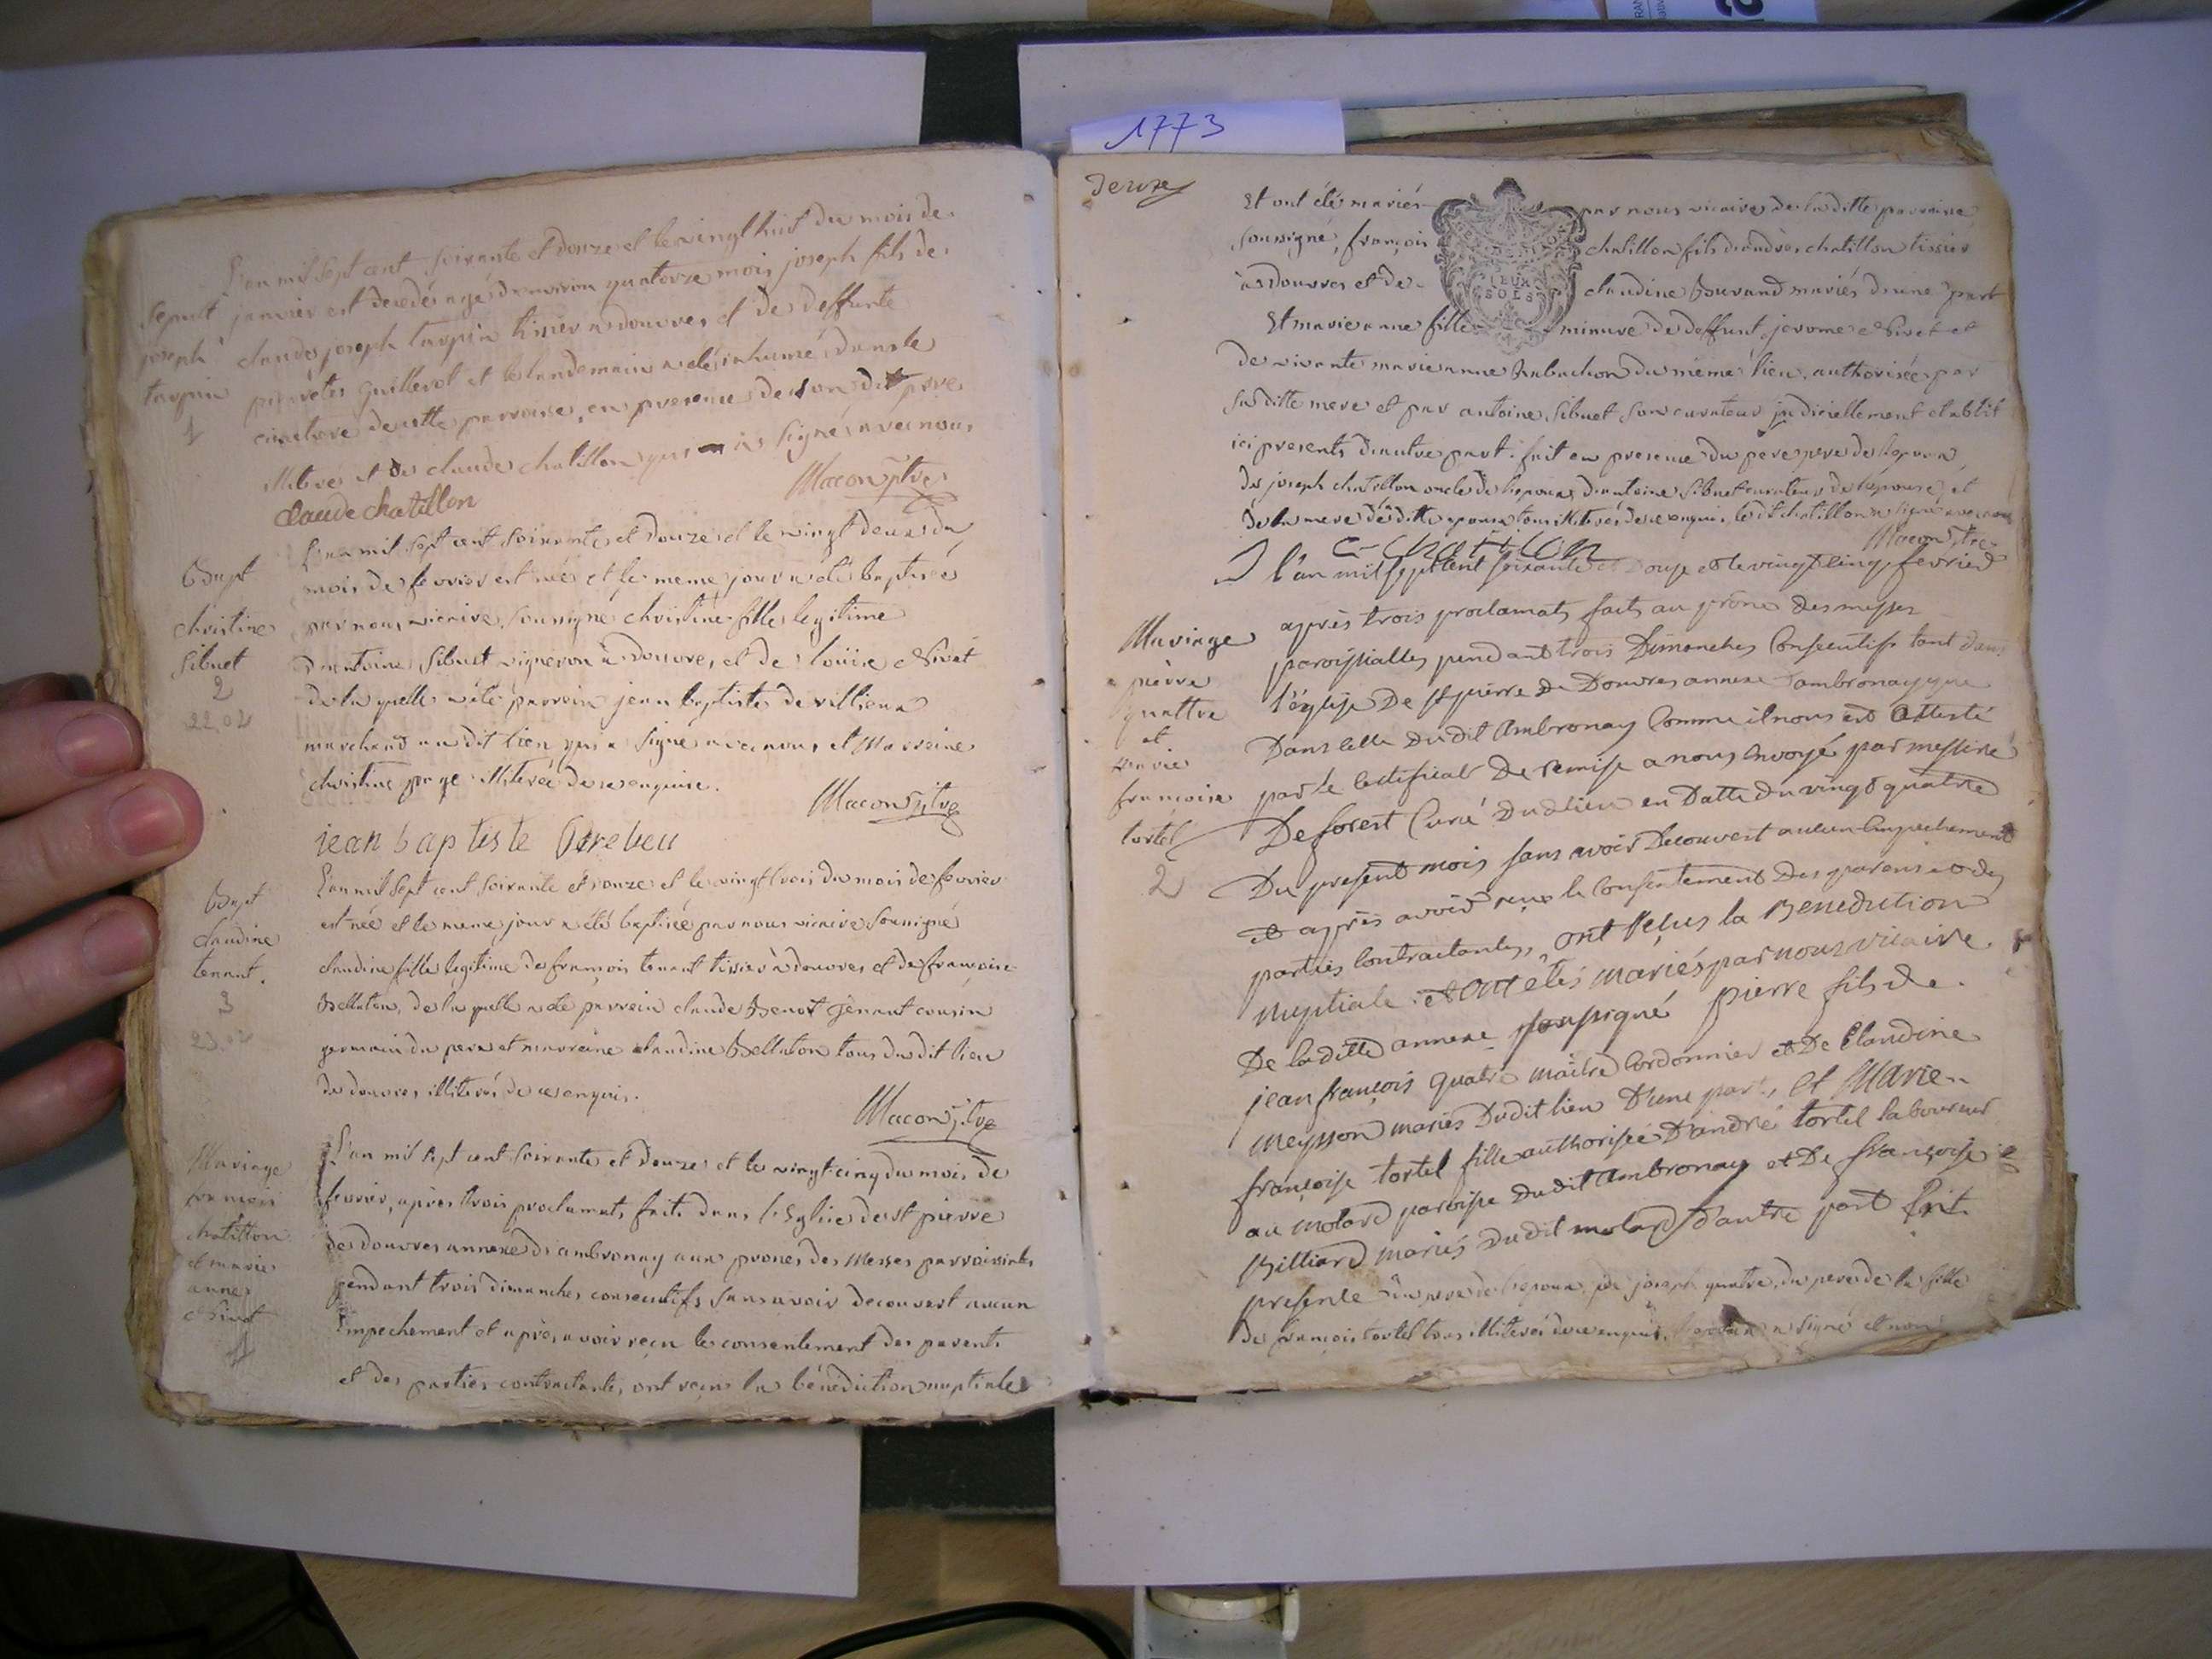 L'an mil sept cent soixante et douze et le vingt huit du mois de
janvier est decedé agé d'environ quatorze mois joseph fils de
claude joseph turpin tissier a douvres et de deffunte
guillerot et le landemain a été inhumé dans le
cimetiere de cette parroise, en presence de son dit pere
illiteré et de claude chatillon qui a signé avec nous
claude chatillon
Macon ptre
Sepult
joseph
turpin
1
L'an mil sept cent soixante et douze et le vingt deux du
mois de fevrier est née et le meme jour a été baptisée
par nous vicaire soussigné christine fille legitime
d'antoine sibuet vigneron a douvres, et de loüise Nivet
de la quelle a été parrain jean baptiste de villieux
marchand au dit lieu qui a signé avec nous et Marreine
christine page illiterée de ce enquise.
Macon ptre
jean baptiste
Bapt
christine
sibuet
2
22.02
L'an mil sept cent soixante et douze et le vingt trois du mois de fevrier
est née et le meme jour a été baptisée par nous vicaire soussigné
claudine fille legitime de françois tenant tissier a douvres et de françoise
Bellaton, de la quelle a été parrain claude Benoit tenant cousin
germain du pere et marreine claudine Bellaton tous du dit lieu
de douvres illiterés de ce enquis.
Macon ptre
Bapt
claudine
tenant.
3
23.02
L'an mil sept cent soixante et douze et le vingt-cinq du mois de
fevrier, apres trois proclamats faits dans l'Eglise de st pierre
de douvres annexe d'ambronay aux prones des Messes parroissiales
pendant trois dimanches consecutifs sans avoir decouvert aucun
Empechement et après avoir reçu le consentement des parents
et des parties contractantes, ont reçu la bénédiction nuptiale
Mariage
françois
chatillon
et marie
anne
Nivet
1
1773
deuxe
Et ont été mariés par nous vicaire de la ditte parroise
soussigné, françois chatillon fils d'andré chatillon tissier
à douvres et de claudine Bouvand mariés d'une part
Et marie anne fille mineure de deffunt jerome Nivet et
de vivante marie anne du même lieu, authorisée par
sa ditte mere et par antoine sibuet son curateur judiciellement etablit
ici presents d'autre part. fait en presence du pere de l'epoux,
de joseph chatillon oncle de l'epoux, d'antoine sibuet curateur de l'epouse, et
de la mere de ditte epouse tous illiterés de ce enquis, le dt chatillon a signé avec nous
Macon ptre
c-chatillon
DEUX
SOLS
l'an mil sept cent soixante et douze et le vingt cinq fevrier
après trois proclamats faits au prône des messes
paroissialles pendant trois Dimanches Consecutifs tant dans
l'église De st pierre De Douvres annexe d'ambronay que
Dans celle Dudit Ambronay Comme il nous est attesté
par le certificat De remise a nous envoyé par messire
De forest Curé Dudit lieu en Datte du vingt quatre
Du present mois sans avoir Decouvert aucun Empechement
et après avoir reçus le Consentement Des parens et des
parties Contractantes, ont reçus la Benediction
nuptiale et ont étés mariés par nous vicaire
De laditte annexe soussigné pierre fils de
jean françois quatre maître Cordonnier et De Claudine
Meysson mariés Dudit lieu D'une part, et Marie
françoise tortel fille authorisée D'andré tortel laboureur
au molard paroisse Dudit Ambronay et De françoise
Billiard mariés Dudit molard d'autre part fait
presence du pere de l'epoux, de joseph quatre, du pere de la fille
de françois tortel tous illiterés de ce enquis, a signé et non
Mariage
pierre
quattre
et
marie
francoise
tortel
2